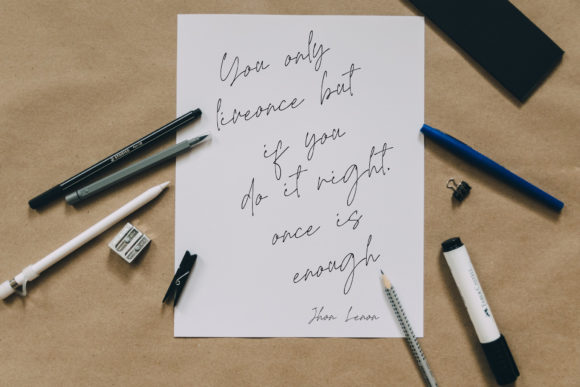 You only
liveonce but
if you
do it right.
once is
enough
Jhon Lenon